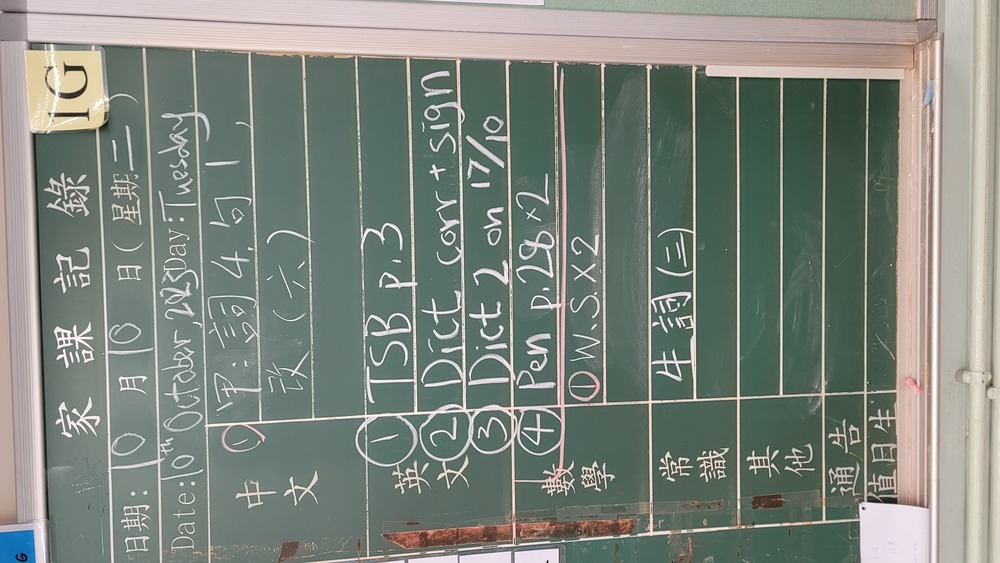 1G
家課記錄
日期: 10 月 10 日 ( 星期 二 )
Date: 10th October, 2023 Day: Tuesday
中文
① 甲. 詞 4. 句 1,
改 (六)
英文
① TSB p.3
② Dict corr + sign
③ Dict 2 on 17/10
④ Pen p.28 ×2
數學
① W.S. × 2
常識
生詞 (二)
其他
通告
值日生
G